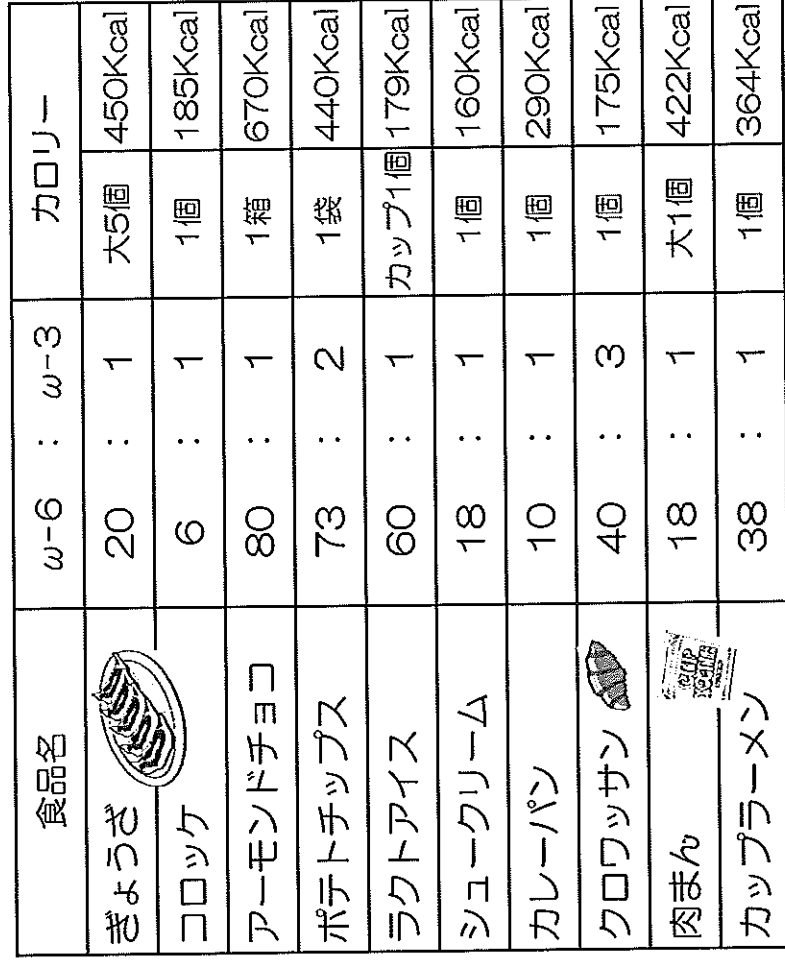 食品名 ω-6 : ω-3 カロリー
ぎょうざ 20 : 1 大5個 450Kcal
コロッケ 6 : 1 1個 185Kcal
アーモンドチョコ 80 : 1 1箱 670Kcal
ポテトチップス 73 : 2 1袋 440Kcal
ラクトアイス 60 : 1 カップ1個 179Kcal
シュークリーム 18 : 1 1個 160Kcal
カレーパン 10 : 1 1個 290Kcal
クロワッサン 40 : 3 1個 175Kcal
肉まん 18 : 1 大1個 422Kcal
カップラーメン 38 : 1 1個 364Kcal